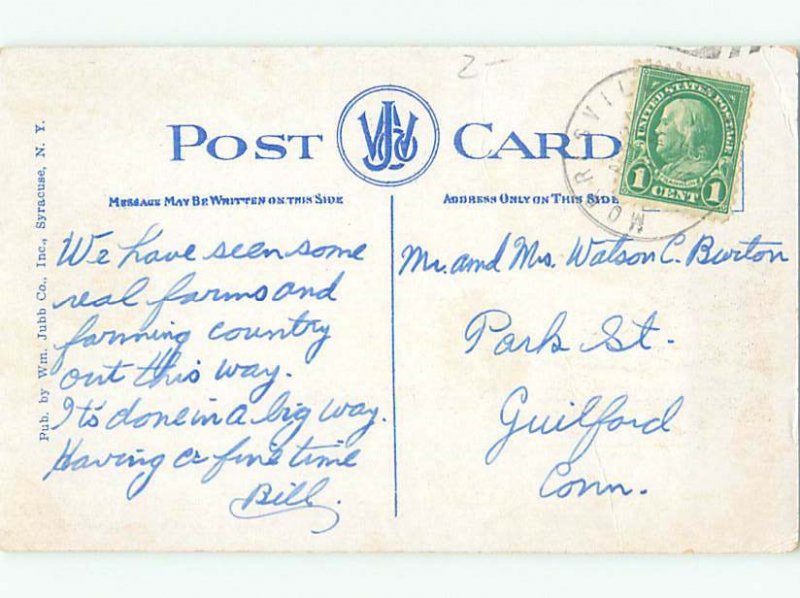 2-
POST CARD
WJ
MESSAGE MAY BE WRITTEN ON THIS SIDE
ADDRESS ONLY ON THIS SIDE
UNITED STATES POSTAGE
1 CENT 1
Pub. by Wm. Jubb Co., Inc., Syracuse, N. Y.
We have seen some
real farms and
farming country
out this way.
It's done in a big way.
Having a fine time
Bill.
Mr. and Mrs. Watson C. Burton
Park St.
Guilford
Conn.